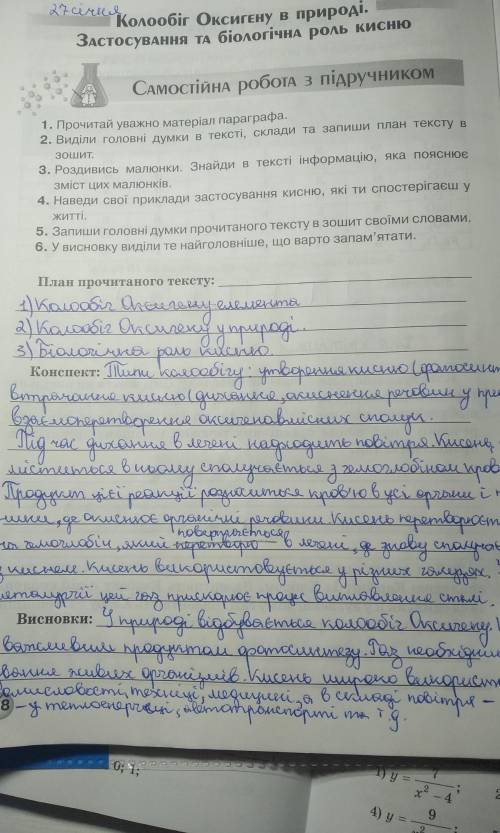 27 січня
Колообіг Оксигену в природі.
Застосування та біологічна роль кисню
Самостійна робота з підручником
1. Прочитай уважно матеріал параграфа.
2. Виділи головні думки в тексті, склади та запиши план тексту в
зошит.
3. Роздивись малюнки. Знайди в тексті інформацію, яка пояснює
зміст цих малюнків.
4. Наведи свої приклади застосування кисню, які ти спостерігаєш у
житті.
5. Запиши головні думки прочитаного тексту в зошит своїми словами.
6. У висновку виділи те найголовніше, що варто запам'ятати.
План прочитаного тексту:
1) Колообіг Оксигену елемента
2) Колообіг Оксигену у природі.
3) Біологічна роль кисню.
Конспект: Типи колообігу: утворення кисню (фотосинт
втрачання кисню (дихання, окиснення речовин у пр
взаємоперетворення оксигеновмісних сполук.
Під час дихання в легені надходить повітря. Кисень,
міститься в ньому сполучається з гемоглобіном кров
Продукт цієї реакції розноситься кров'ю в усі органи і
де окиснює органічні речовини. Кисень перетворюєт
повертається
на гемоглобін, який перетворю в легені, де знову сполучає
з киснем. Кисень використовується у різних галузях.
металургії цей газ прискорює процес виплавлення сталі.
Висновки: У природі відбувається колообіг Оксигену.
важливим продуктом фотосинтезу. Газ необхідний
вання живих організмів. Кисень широко використ
омисловості, техніці, медицині, а в складі повітря –
8 – у теплоенергеці, автотранспорті та т.д.
0; 1;
1) y = 7
x² – 4 ;
4) y = 9